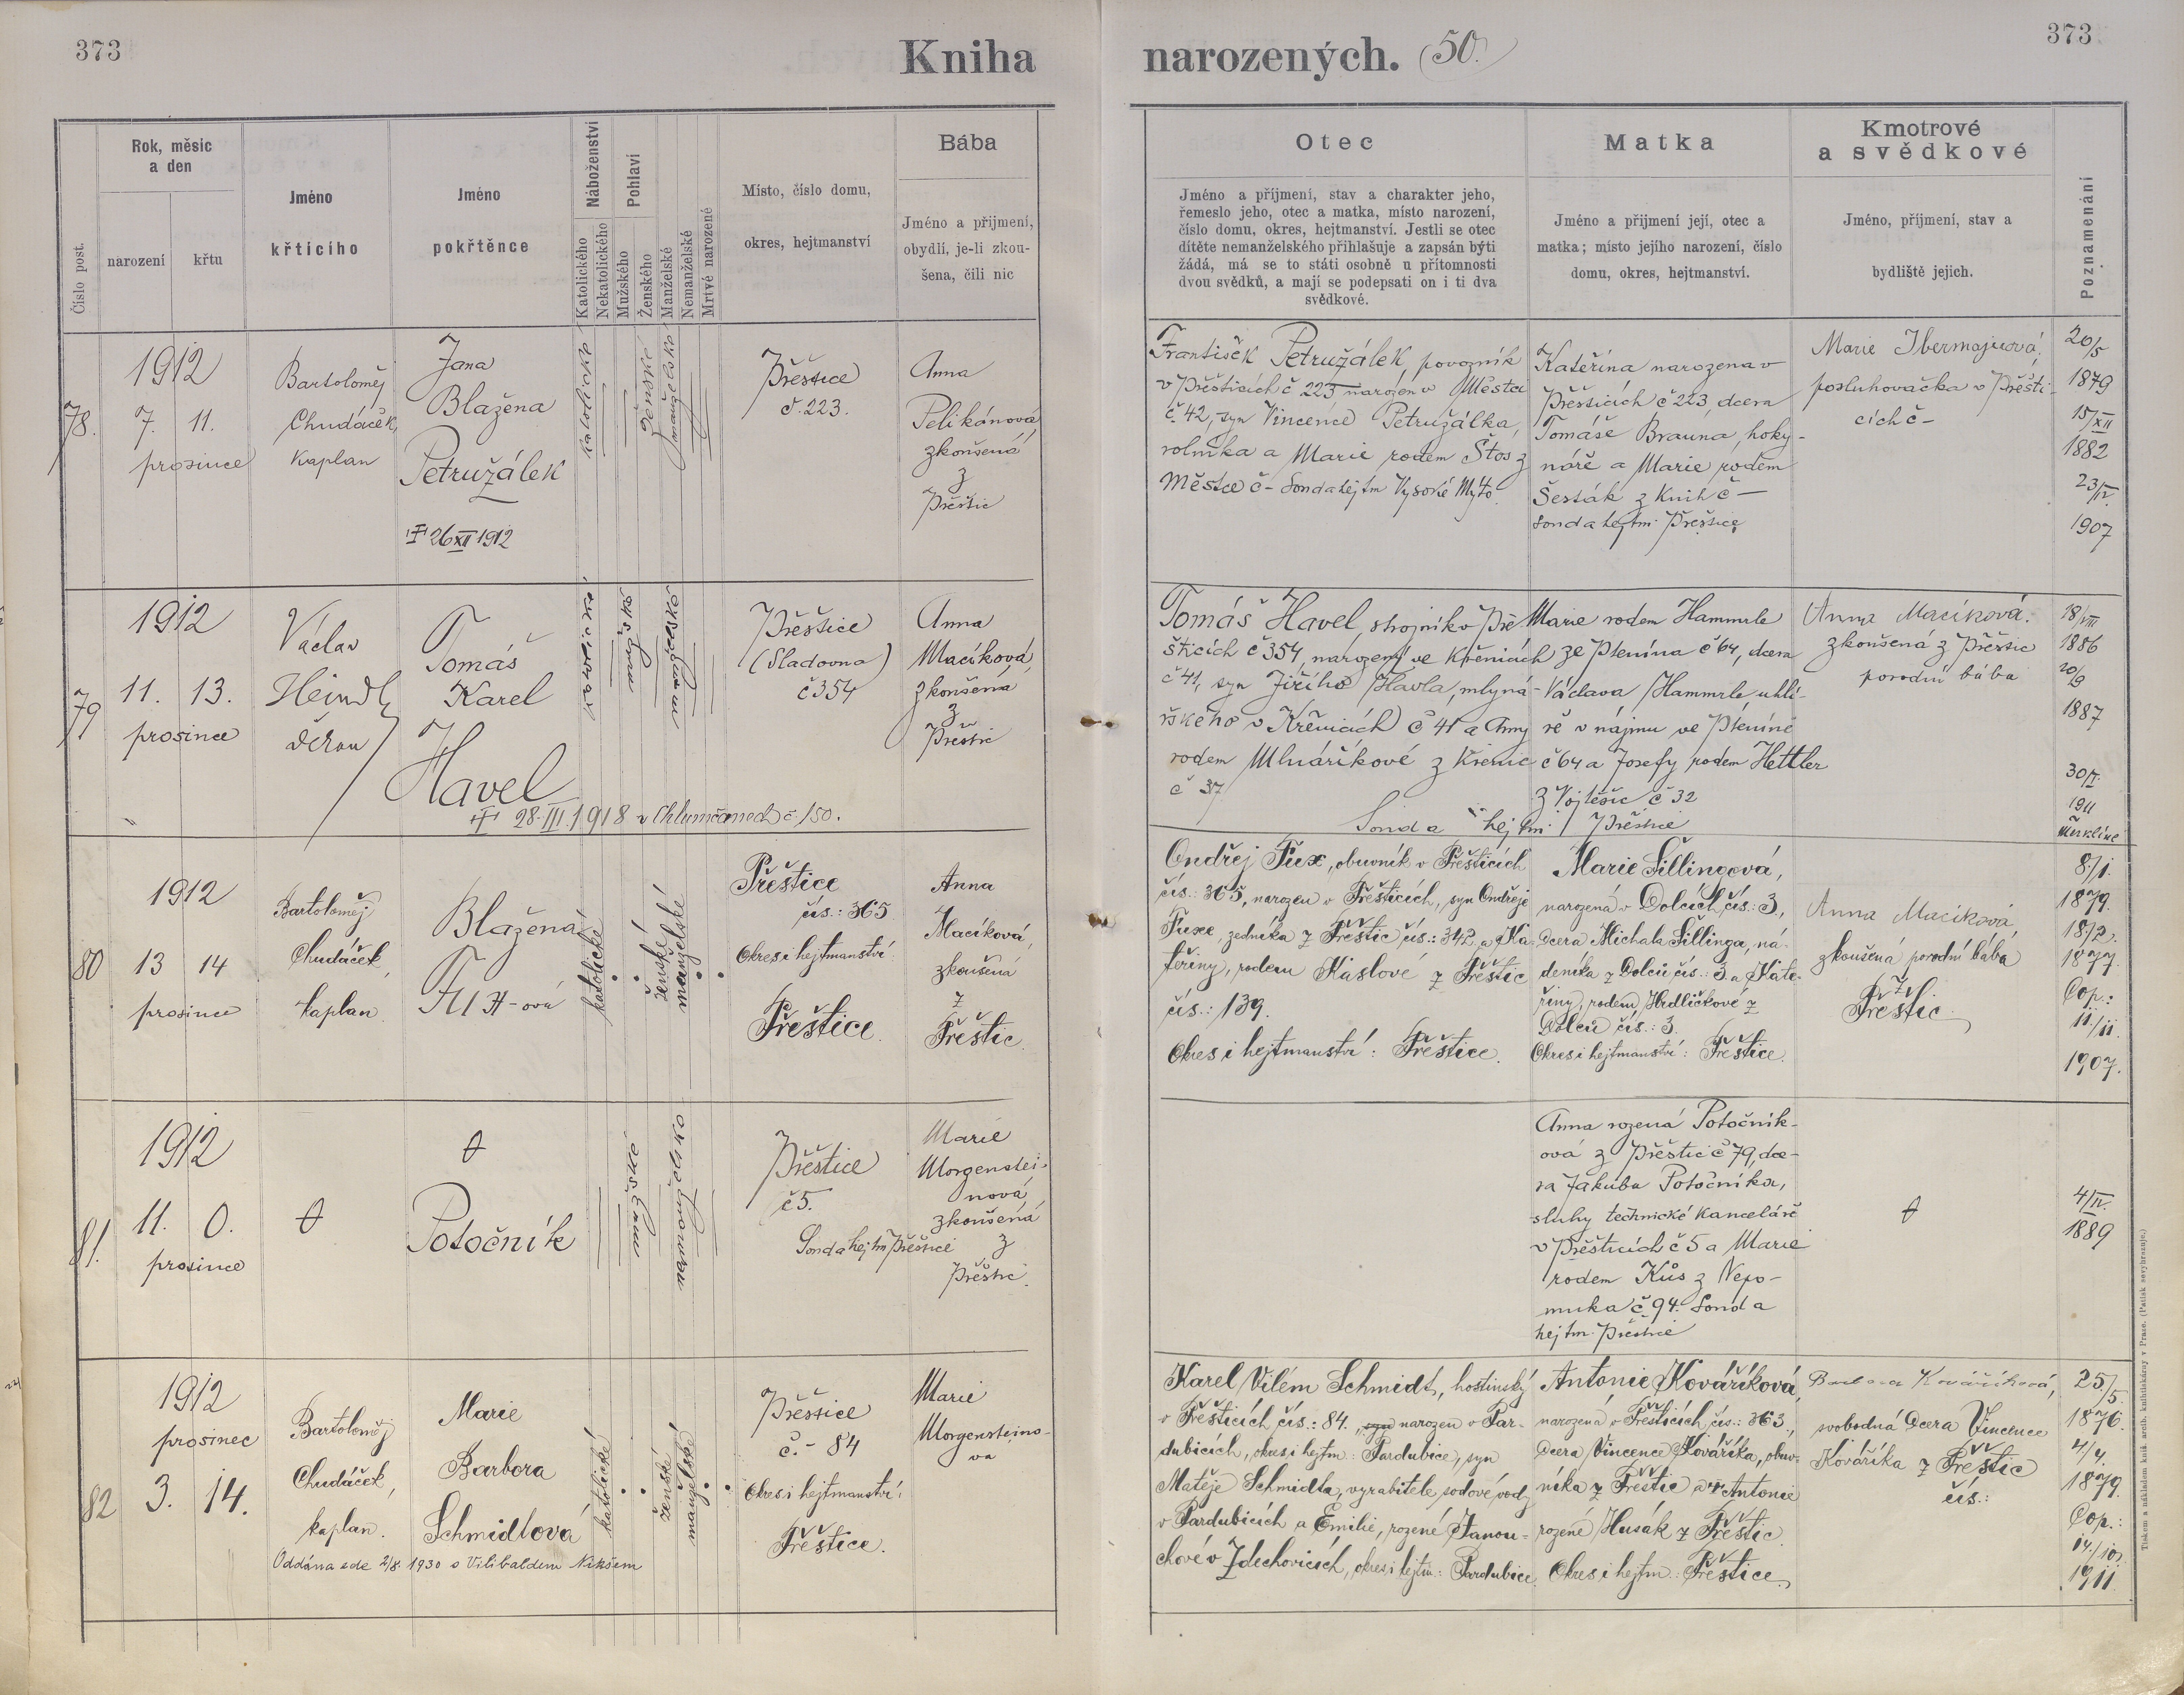 373
Kniha
narozených. (50.)
373
Číslo post.
Rok, měsíc
a den
narození
křtu
Jméno
křticího
Jméno
pokřtěnce
Náboženství
Katolického
Nekatolického
Pohlaví
Mužského
Ženského
Manželské
Nemanželské
Mrtvě narozené
Místo, číslo domu,
okres, hejtmanství
Bába
Jméno a přijmení,
obydlí, je-li zkou-
šena, čili nic
Otec
Jméno a příjmení, stav a charakter jeho,
řemeslo jeho, otec a matka, místo narození,
číslo domu, okres, hejtmanství. Jestli se otec
dítěte nemanželského přihlašuje a zapsán býti
žádá, má se to státi osobně u přítomnosti
dvou svědků, a mají se podepsati on i ti dva
svědkové.
Matka
Jméno a přijmení její, otec a
matka; místo jejího narození, číslo
domu, okres, hejtmanství.
Kmotrové
a svědkové
Jméno, příjmení, stav a
bydliště jejich.
Poznamenání
78.
1912
7. 11.
prosince
Bartoloměj
Chudáček,
kaplan
Jana
Blažena
Petružálek
26 XII 1912
katolické
ženské
manželské
Přeštice
č. 223.
Anna
Pelikánová
zkoušená
z
Přeštic
František Petružálek, povozník
v Přešticích č 223 narozen v Městci
č. 42, syn Vincence Petružálka,
rolníka a Marie rodem Štos z
Městce č - Sond a hejtm Vysoké Mýto
Kateřina narozena v
Přešticích č 223, dcera
Tomáše Brauna, hoky-
náře a Marie rodem
Šesták z Knih č —
sond a hejtm. Přeštice
Marie
posluhovačka v Přešti-
cích č -
20/5
1879
15/XII
1882
23/IV.
1907
79
1912
11. 13.
prosince
Václav
Heindl
děkan
Tomáš
Karel
Havel
28. III. 1918 v Chlumčanech č. 150.
katolické
mužské
manželské
Přeštice
(Sladovna)
č 354
Anna
Macíková,
zkoušená
z
Přeštic
Tomáš Havel, strojník v Pře-
šticích č 354, narozený ve Křenicích
č 41, syn Jiřího Havla, mlyná-
řského v Křenicích č 41 a Anny
rodem Mlnáříkové z Křenic
č 37
Sond a hejtm: Přeštice
Marie rodem Hammrle
ze Ptenína č 64, dcera
Václava Hammrle uhlí-
ře v nájmu ve Pteníně
č 64 a Josefy rodem Hettler
z Vojtěšic č 32
Anna Macíková.
zkoušená z Přeštic
porodní bába
18/VIII
1886
20/9
1887
1911
Merklíně
80
1912
13 14
prosince
Bartoloměj
Chudáček,
kaplan.
Blažena
katolické
ženské
manželské
Přeštice
čís.: 365
Okres i hejtmanství:
Přeštice.
Anna
Macíková,
zkoušená
z
Přeštic.
Ondřej Fux, obuvník v Přešticích
čís.: 365, narozen v Přešticích, syn Ondřeje
Fuxe, zedníka z Přeštic čís.: 342 a Ka-
teřiny, rodem Káslové z Přeštic
čís.: 139.
Okres i hejtmanství: Přeštice.
Marie Šillingová,
narozená v Dolcích čís.: 3,
dcera Michala Šillinga, ná-
deníka z Dolců čís.: 3 a Kate-
řiny, rodem Hrdličkové z
Dolců čís.: 3.
Okres i hejtmanství: Přeštice.
Anna Macíková,
zkoušená porodní bába
z
Přeštic.
8./1.
1879.
18/2.
1877.
Cop.:
11./11.
1907.
81.
1912
11. 0.
prosince
Potočník
mužské
nemanželské
Přeštice
č 5.
Sond a hejtm Přeštice
Marie
Morgenstei-
nová,
zkoušená
z
Přeštic.
Anna rozená Potočník-
ová z Přeštic č 79, dce-
ra Jakuba Potočníka,
sluhy technické kanceláře
v Přešticích č 5 a Marie
rodem Kůs z Nepo-
muka č. 94. Sond a
hejtm. Přeštice
4/IV.
1889
82
1912
prosinec
3. 14.
Bartoloměj
Chudáček,
kaplan.
Marie
Barbora
Schmidtová
Oddána zde 2/8. 1930 s Vilibaldem Nikšem
katolické
ženské
manželské
Přeštice
č. - 84
Okres i hejtmanství:
Přeštice.
Marie
Morgensteino-
va
Karel Vilém Schmidt, hostinský
v Přešticích čís.: 84. syn narozen v Par-
dubicích, okres i hejtm: Pardubice, syn
Matěje Schmidta, vyrabitele sodové vody
v Pardubicích a Emilie, rozené Janou-
chové v Zdechovicích, okres i hejtm.: Pardubice.
Antonie Kováříková,
narozená v Přešticích, čís.: 363.,
dcera Vincence Kováříka, obuv-
níka z Přeštic a Antonie
rozené Husák z Přeštic.
Okres i hejtm.: Přeštice.
Barbora Kováříková,
svobodná dcera Vincence
Kováříka z Přeštic
čís.:
25/5.
1876.
4/4.
1879.
Cop.:
14./10.
1911.
Tiskem a nákladem kníž. arcib. knihtiskárny v Praze. (Patisk se vyhrazuje.)